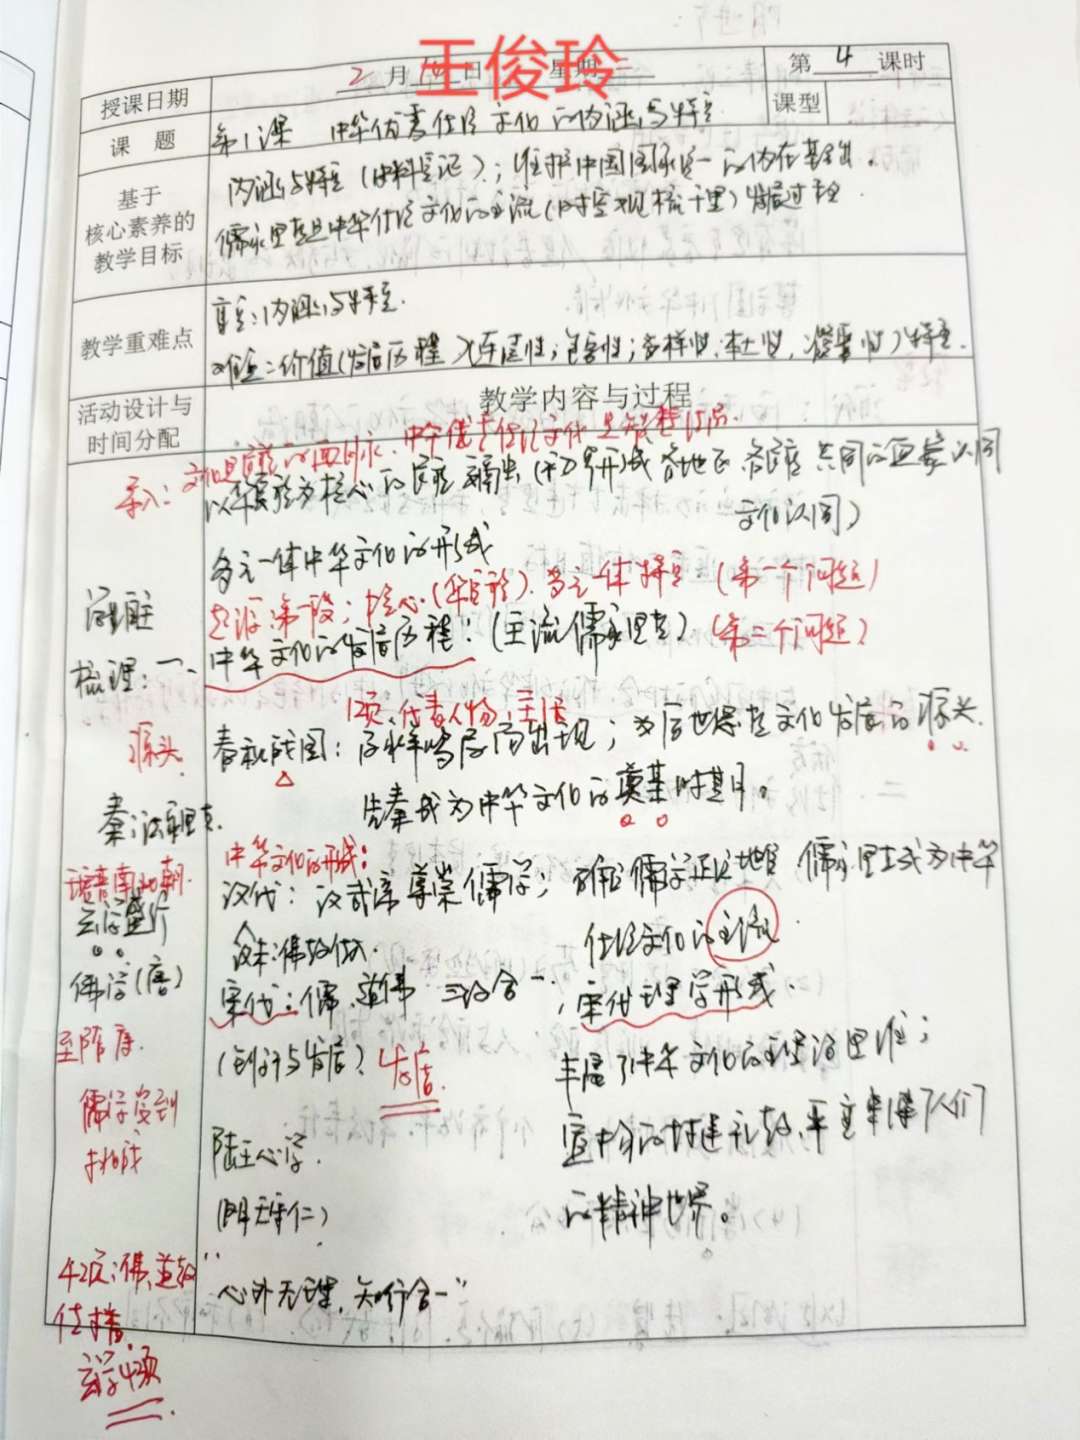 王俊玲
授课日期 2月 日 星期二 第4课时
课型
课题 第1课 中华优秀传统文化的内涵与特点
基于
核心素养的
教学目标
内涵与特点(史料实证);维护中国国家统一的内在基础。
儒家思想是中华传统文化的主流(时空观梳理)发展过程
教学重难点
重点:内涵与特点.
难点:价值(发展历程 连续性;包容性;多样性,本土性,凝聚性)特点.
活动设计与
时间分配
教学内容与过程
导入: 文化是 的血脉,中华优秀传统文化是
以华夏族为核心的民族 (初步形成各地区 各民族 共同的国家认同
文化认同)
多元一体中华文化的形成
起源:第一段;核心(华夏族).多元一体特点 (第一个问题)
梳理:一、中华文化的发展历程:(主流儒家思想) (第二个问题)
页.代表人物,主张
源头. 春秋战国:百家争鸣局面出现;为后世思想文化发展的源头.
先秦成为中华文化的奠基时期。
秦:法家思想.
中华文化的形成:
魏晋南北朝.
汉代:汉武帝尊崇儒学; 儒学正统地位 儒家思想成为中华
传统文化的主流.
玄学盛行
汉末:佛教传入.
佛学(唐)
宋代:儒、道佛 三教合一,宋代理学形成.
至隋唐.
(创新与发展) 发展.
丰富了中华文化的理论思维;
儒学受到
挑战
宣扬的封建礼教,严重束缚了人们
的精神世界。
陆王心学.
(明 王守仁)
4页:佛,道教
传播.
玄学4页
"心外无理,知行合一"